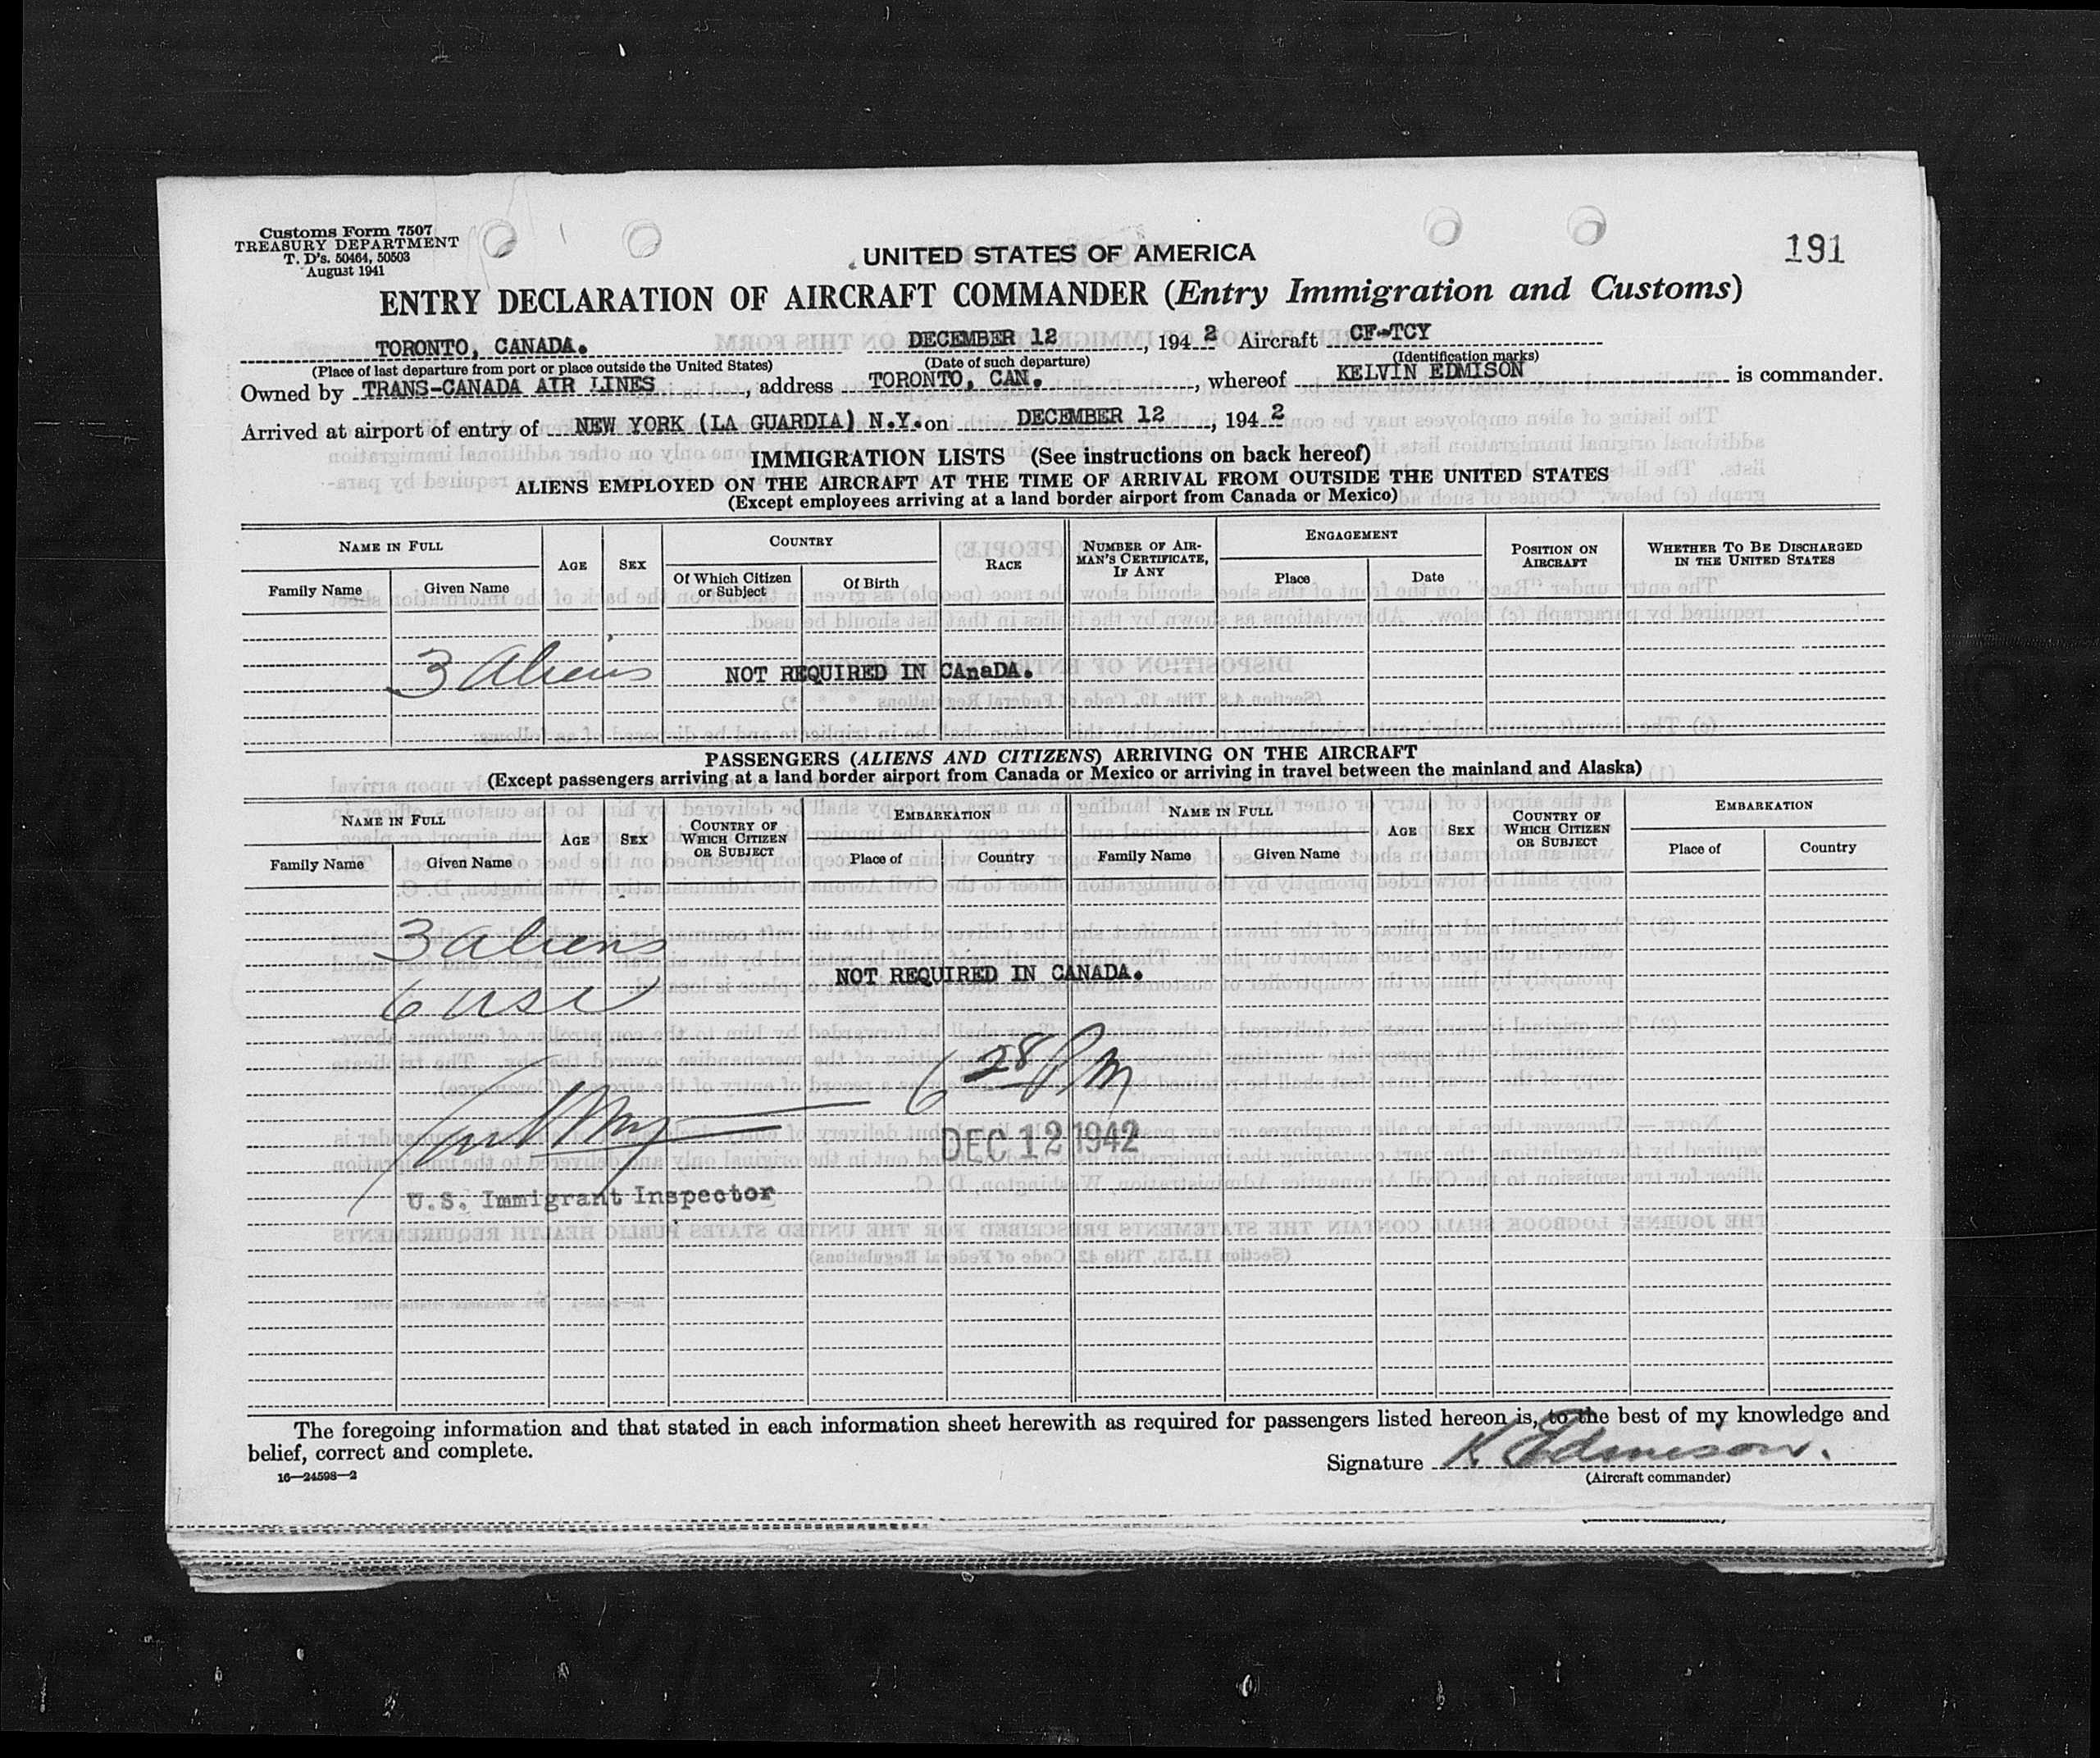 Customs Form 7507
TREASURY DEPARTMENT
T. D's. 50464, 50503
August 1941
191
UNITED STATES OF AMERICA
ENTRY DECLARATION OF AIRCRAFT COMMANDER (Entry Immigration and Customs)
TORONTO, CANADA. DECEMBER 12, 1942 Aircraft CF-TCY
(Place of last departure from port or place outside the United States) (Date of such departure) (Identification marks)
Owned by TRANS-CANADA AIR LINES, address TORONTO, CAN., whereof KELVIN EDMISON is commander.
Arrived at airport of entry of NEW YORK (LA GUARDIA) N.Y. on DECEMBER 12, 1942
IMMIGRATION LISTS (See instructions on back hereof)
ALIENS EMPLOYED ON THE AIRCRAFT AT THE TIME OF ARRIVAL FROM OUTSIDE THE UNITED STATES
(Except employees arriving at a land border airport from Canada or Mexico)
NAME IN FULL AGE SEX COUNTRY RACE NUMBER OF AIRMAN'S CERTIFICATE, IF ANY ENGAGEMENT POSITION ON AIRCRAFT WHETHER TO BE DISCHARGED IN THE UNITED STATES
Family Name Given Name Of Which Citizen or Subject Of Birth Place Date
3 Aliens NOT REQUIRED IN CAnaDA.
PASSENGERS (ALIENS AND CITIZENS) ARRIVING ON THE AIRCRAFT
(Except passengers arriving at a land border airport from Canada or Mexico or arriving in travel between the mainland and Alaska)
NAME IN FULL AGE SEX COUNTRY OF WHICH CITIZEN OR SUBJECT EMBARKATION NAME IN FULL AGE SEX COUNTRY OF WHICH CITIZEN OR SUBJECT EMBARKATION
Family Name Given Name Place of Country Family Name Given Name Place of Country
3 aliens
NOT REQUIRED IN CANADA.
6 usc
6 28 PM
DEC 12 1942
U.S. Immigrant Inspector
The foregoing information and that stated in each information sheet herewith as required for passengers listed hereon is, to the best of my knowledge and
belief, correct and complete.
16—24598—2
Signature K Edmison.
(Aircraft commander)